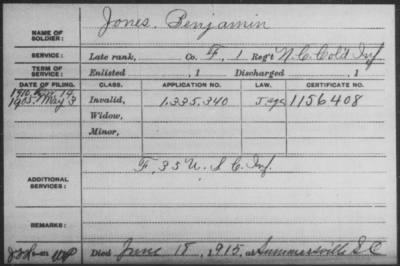 Jones, Benjamin
NAME OF SOLDIER:
SERVICE: Late rank, Co. F, 1 Reg't N.C. Cold Inf.
TERM OF SERVICE: Enlisted , 1 Discharged , 1
DATE OF FILING. CLASS. APPLICATION NO. LAW. CERTIFICATE NO.
1905, May 3 Invalid, 1,335,340 1156408
Widow,
Minor,
ADDITIONAL SERVICES: F, 35 U.S.C. Inf.
REMARKS:
Died June 18, 1915, at Summersville S.C.